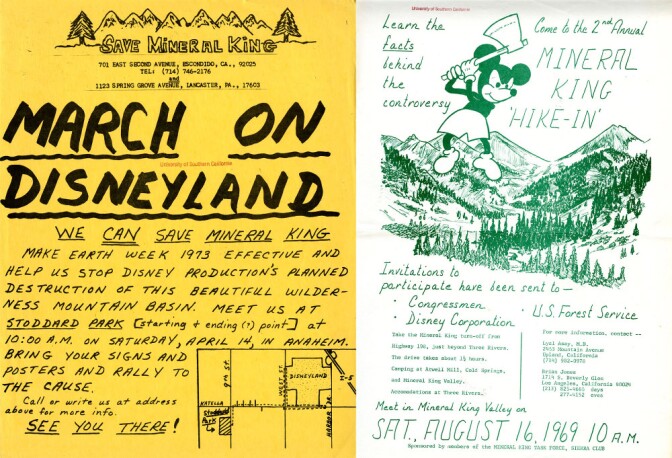 SAVE MINERAL KING
701 EAST SECOND AVENUE, ESCONDIDO, CA., 92025
TEL: (714) 746-2176
and
1123 SPRING GROVE AVENUE, LANCASTER, PA., 17603
MARCH ON
DISNEYLAND
University of Southern California
WE CAN SAVE MINERAL KING
MAKE EARTH WEEK 1973 EFFECTIVE AND
HELP US STOP DISNEY PRODUCTION'S PLANNED
DESTRUCTION OF THIS BEAUTIFUL WILDER-
NESS MOUNTAIN BASIN. MEET US AT
STODDARD PARK [starting & ending (?) point] at
10:00 A.M. ON SATURDAY, APRIL 14, IN ANAHEIM.
BRING YOUR SIGNS AND
POSTERS AND RALLY TO
THE CAUSE.
Call or write us at address
above for more info.
SEE YOU THERE!
9th ST.
WEST ST.
DISNEYLAND
KATELLA
Stoddard
Park
HARBOR
University of Southern California
Learn the
facts
behind
the
controversy
Come to the 2nd Annual
MINERAL
KING
'HIKE-IN'
Invitations to
participate have been sent to—
· Congressmen
· Disney Corporation
· U.S. Forest Service
Take the Mineral King turn-off from
Highway 198, just beyond Three Rivers.
The drive takes about 1½ hours.
Camping at Atwell Mill, Cold Springs,
and Mineral King Valley.
Accomodations at Three Rivers.
For more information, contact --
M.D.
Mountain Avenue
Upland, California
(714) 982-3978
Brian Jones
1714 S. Beverly Glen
Los Angeles, California 90024
(213) 825-4661 days
277-4152 eves
Meet in Mineral King Valley on
SAT., AUGUST 16, 1969 10 A.M.
Sponsored by members of the MINERAL KING TASK FORCE, SIERRA CLUB